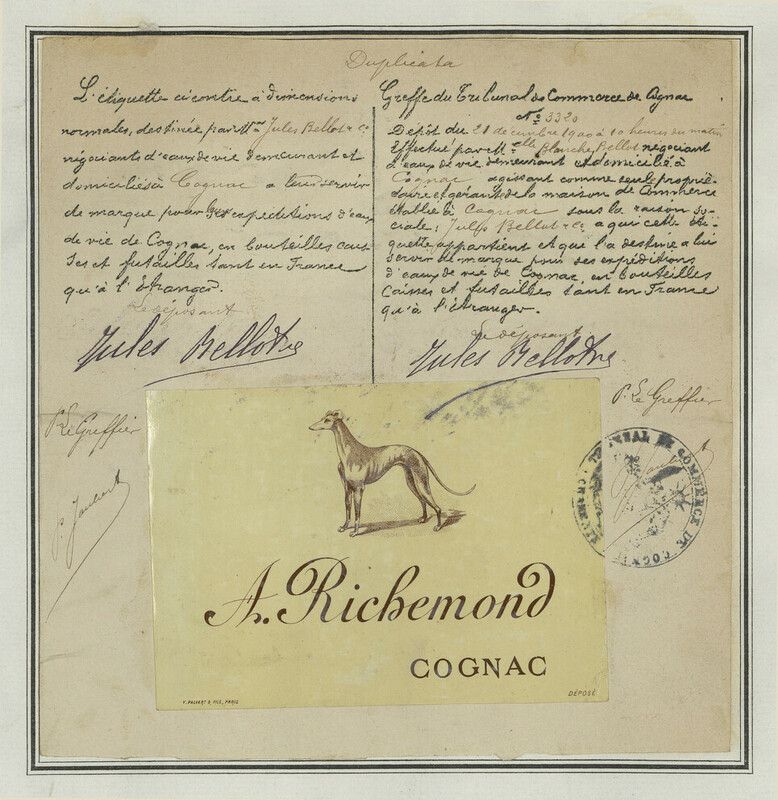 Duplicata
L'étiquette ci contre à dimensions
normales, destinée par M.rs Jules Bellot & Co
négociants d'eaux de vie demeurant et
domiciliés à Cognac a leur servir
de marque pour les expéditions d'eaux
de vie de Cognac, en bouteilles cais-
ses et futailles tant en France
qu'à l'Etranger.
Le déposant
Jules Bellot & Co
P. Le Greffier
P. Jaubert
Greffe du Tribunal de Commerce de Cognac
No 3320
Dépôt du 21 décembre 1900 à 10 heures du matin
Effectué par Melle Blanche Bellot négociant
d'eaux de vie demeurant et domicilié à
Cognac agissant comme seule proprié-
taire et gérante de la maison de Commerce
établie à Cognac sous la raison so-
ciale: Jules Bellot & Co a qui cette éti-
quette appartient et que l'a destine a lui
servir de marque pour ses expéditions
d'eaux de vie de Cognac, en bouteilles
Caisses et futailles tant en France
qu'à l'étranger.
Le déposant
Jules Bellot & Co
P. Le Greffier
TRIBUNAL DE COMMERCE DE COGNAC
A. Richemond
COGNAC
V. PALYART & FILS, PARIS
DÉPOSÉ